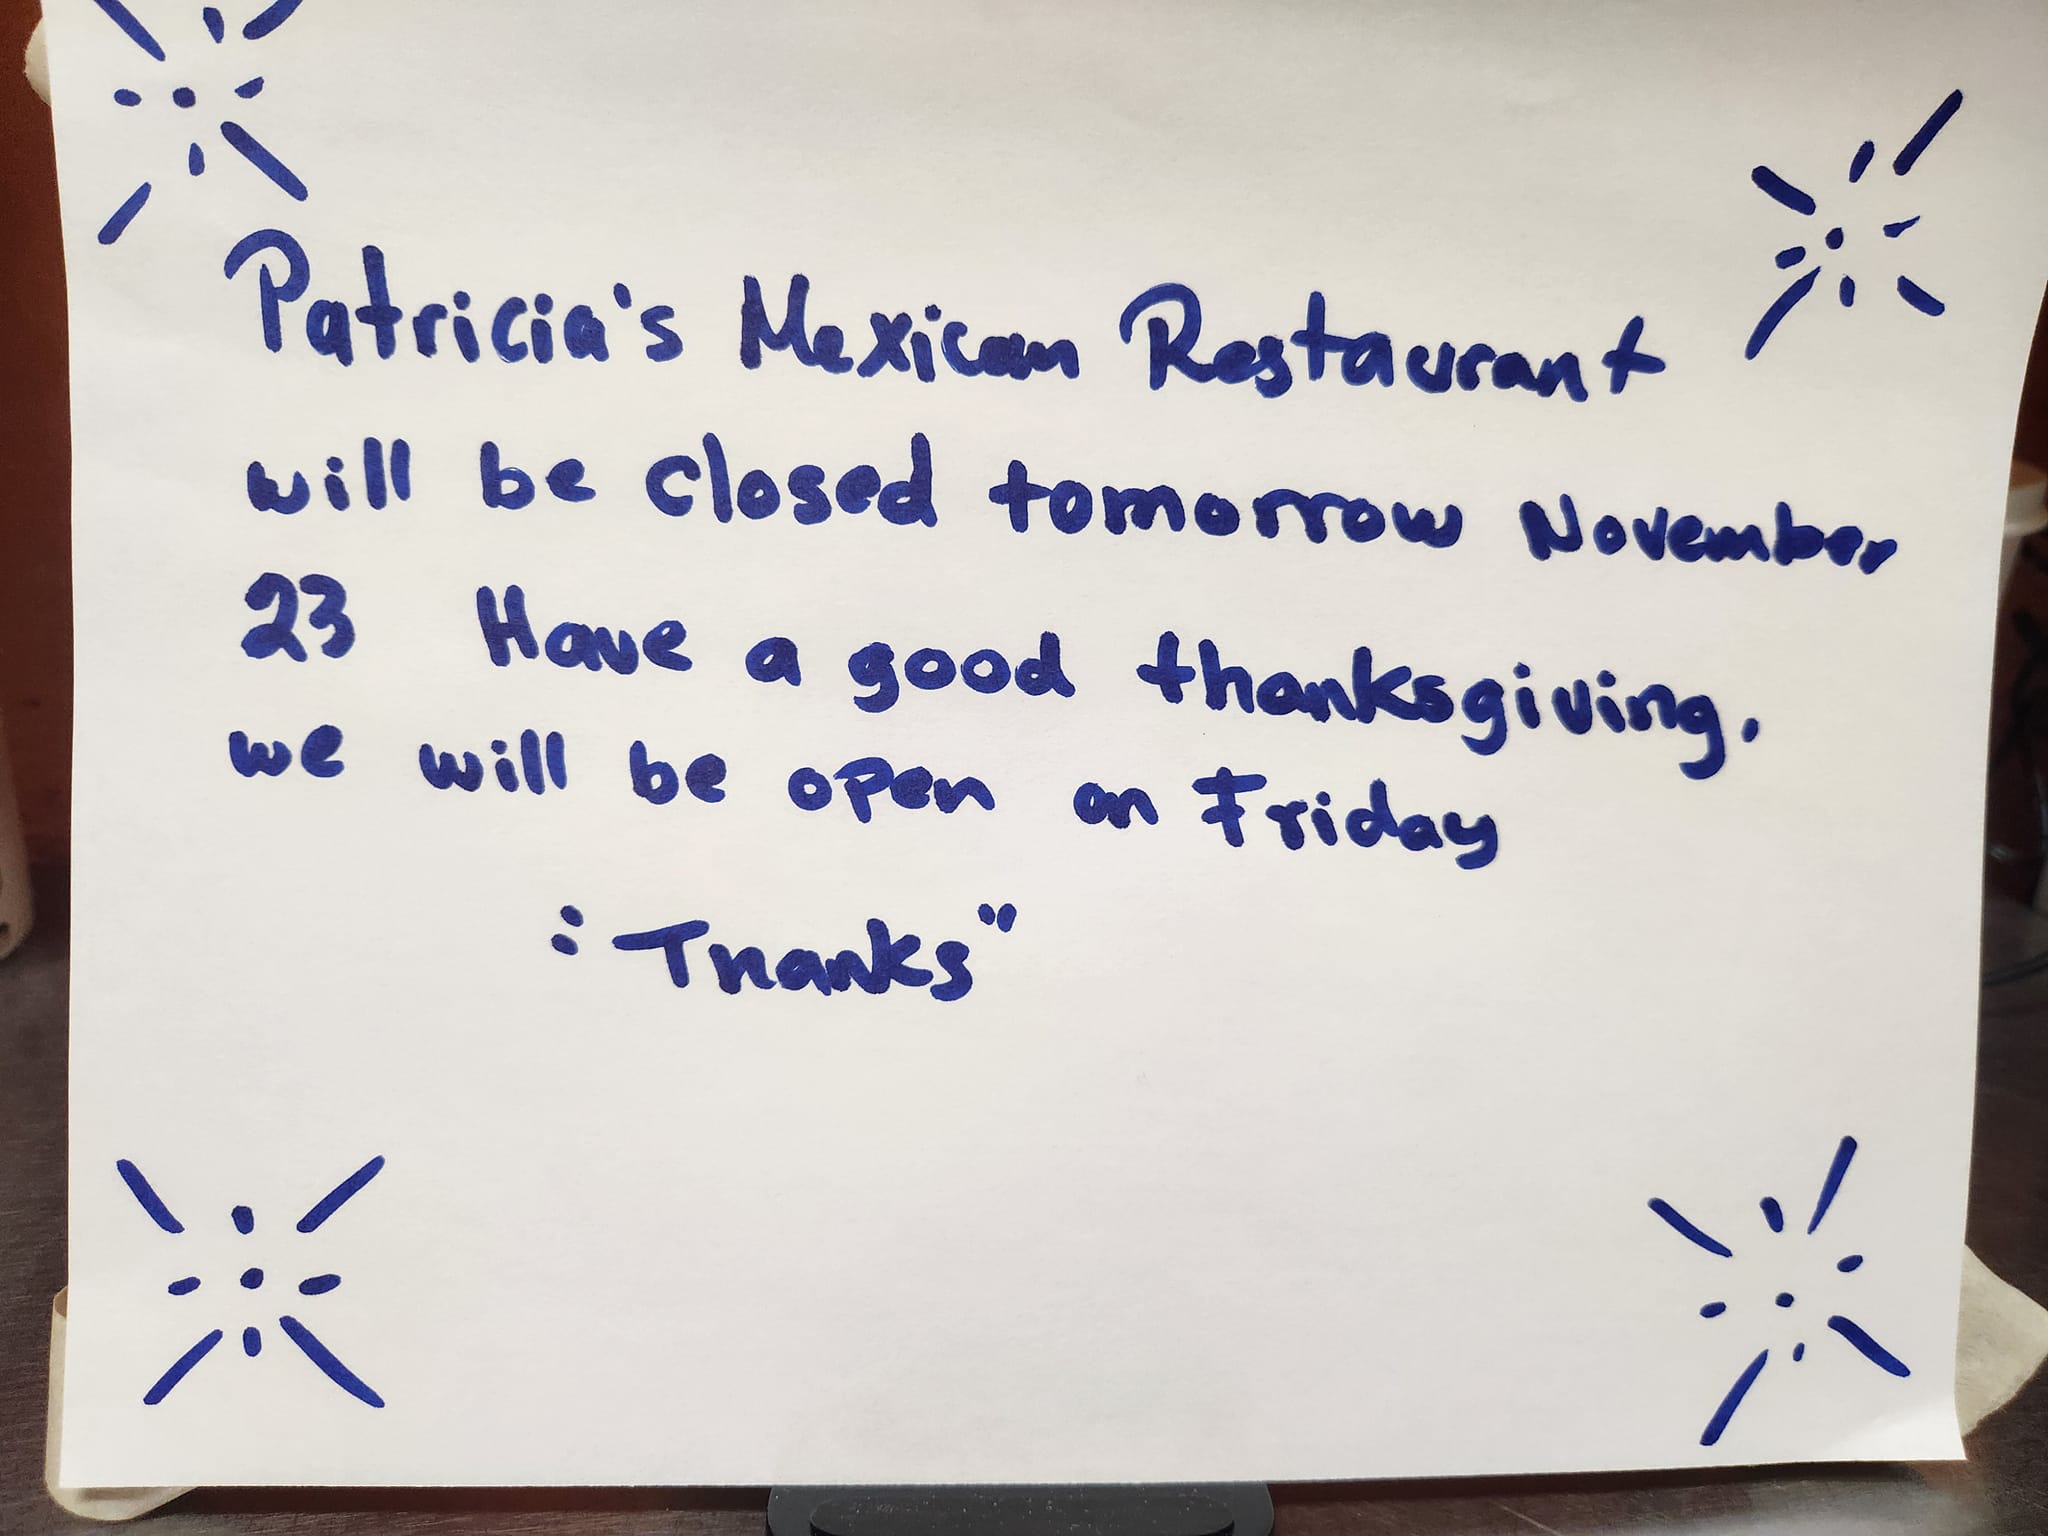 Patricia's Mexican Restaurant
will be closed tomorrow November
23 Have a good thanksgiving.
we will be open on Friday
: Thanks"